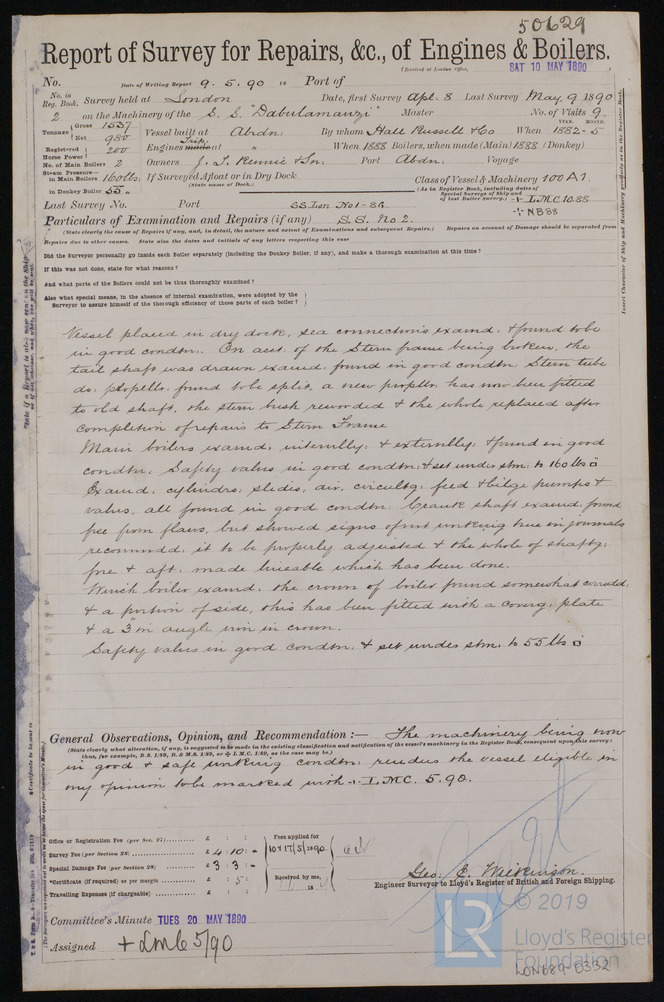 50629
Report of Survey for Repairs, &c., of Engines & Boilers.
(Received at London Office, SAT 10 MAY 1890 )
No. Date of Writing Report 9. 5. 90 18 Port of
No. in Reg. Book. Survey held at London Date, first Survey Apl. 8 Last Survey May. 9 1890
2 on the Machinery of the S. S. "Dabulamanzi" Master No. of Visits 9
Tonnage Gross 1537 Net 980 Vessel built at Abrdn. By whom Hall Russell & Co When 1882-5 YEAR. MONTH.
Registered Horse Power 200 Engines made at " When 1888 Boilers, when made (Main) 1888 (Donkey)
No. of Main Boilers 2 Owners J. T. Rennie & Sn. Port Abdn. Voyage
Steam Pressure in Main Boilers 160 lbs. If Surveyed Afloat or in Dry Dock Class of Vessel & Machinery 100A1.
in Donkey Boiler 55 " (State name of Dock.) (As in Register Book, including dates of Special Surveys of Ship and of last Boiler Survey.) L.M.C. 10.88
Last Survey No. Port SS Lon No 1-86 NB 88
Particulars of Examination and Repairs (if any) S.S. No 2.
(State clearly the cause of Repairs, if any, and, in detail, the nature and extent of Examinations and subsequent Repairs.) Repairs on account of Damage should be separated from
Repairs due to other causes. State also the dates and initials of any letters respecting this case
Did the Surveyor personally go inside each Boiler separately (including the Donkey Boiler, if any), and make a thorough examination at this time?
If this was not done, state for what reasons?
And what parts of the Boilers could not be thus thoroughly examined?
Also what special means, in the absence of internal examination, were adopted by the
Surveyor to assure himself of the thorough efficiency of those parts of each boiler?
Vessel placed in dry dock, sea connections examd. & found to be
in good condtn. On acct. of the Stern frame being broken, the
tail shaft was drawn examd. found in good condtn. Stern tube
do. propellr. found to be split, a new propllr. has now been fitted
to old shaft, the stern bush rewooded & the whole replaced after
completion of repairs to Stern Frame
Main boilers examd. internlly. & externlly. & found in good
condtn. Safety valves in good condtn. & set under stm. to 160 lbs □
Examd. cylindrs. slides, air, circultg. feed & bilge pumps &
valves. all found in good condtn. Crank shaft examd. found
free from flaws, but showed signs of not working true in journals
recommdd. it to be properly adjusted & the whole of shaftg.
fore & aft. made lineable which has been done.
Winch boiler examd. the crown of boiler found somewhat corroded
& a portion of side, this has been fitted with a coverg. plate
& a 3 in angle iron in crown.
Safety valves in good condtn. & set under stm. to 55 lbs □
General Observations, Opinion, and Recommendation :— The machinery being now
(State clearly what alteration, if any, is suggested to be made in the existing classification and notification of the vessel's machinery in the Register Book, consequent upon this survey;
thus, for example, B.S. 1/89, B. & M.S. 1/89, or L.M.C. 1/89, as the case may be.)
in good & safe working condtn. renders the vessel eligible in
my opinion to be marked with L.M.C. 5.90.
Office or Registration Fee (per Sec. 27) £ : :
Survey Fee (per Section 28) £ 4 : 10 : - Fees applied for
Special Damage Fee (per Section 28) £ 3 : 3 : - 17/5/1890
*Certificate (if required) as per margin £ : 5 : Received by me,
Travelling Expenses (if chargeable) £ : : 18
Geo. E. Wilkinson.
Engineer Surveyor to Lloyd's Register of British and Foreign Shipping.
Committee's Minute TUES 20 MAY 1890
Assigned + LMC 5/90
© 2019
LR
Lloyd's Register
Foundation
LON689-0332